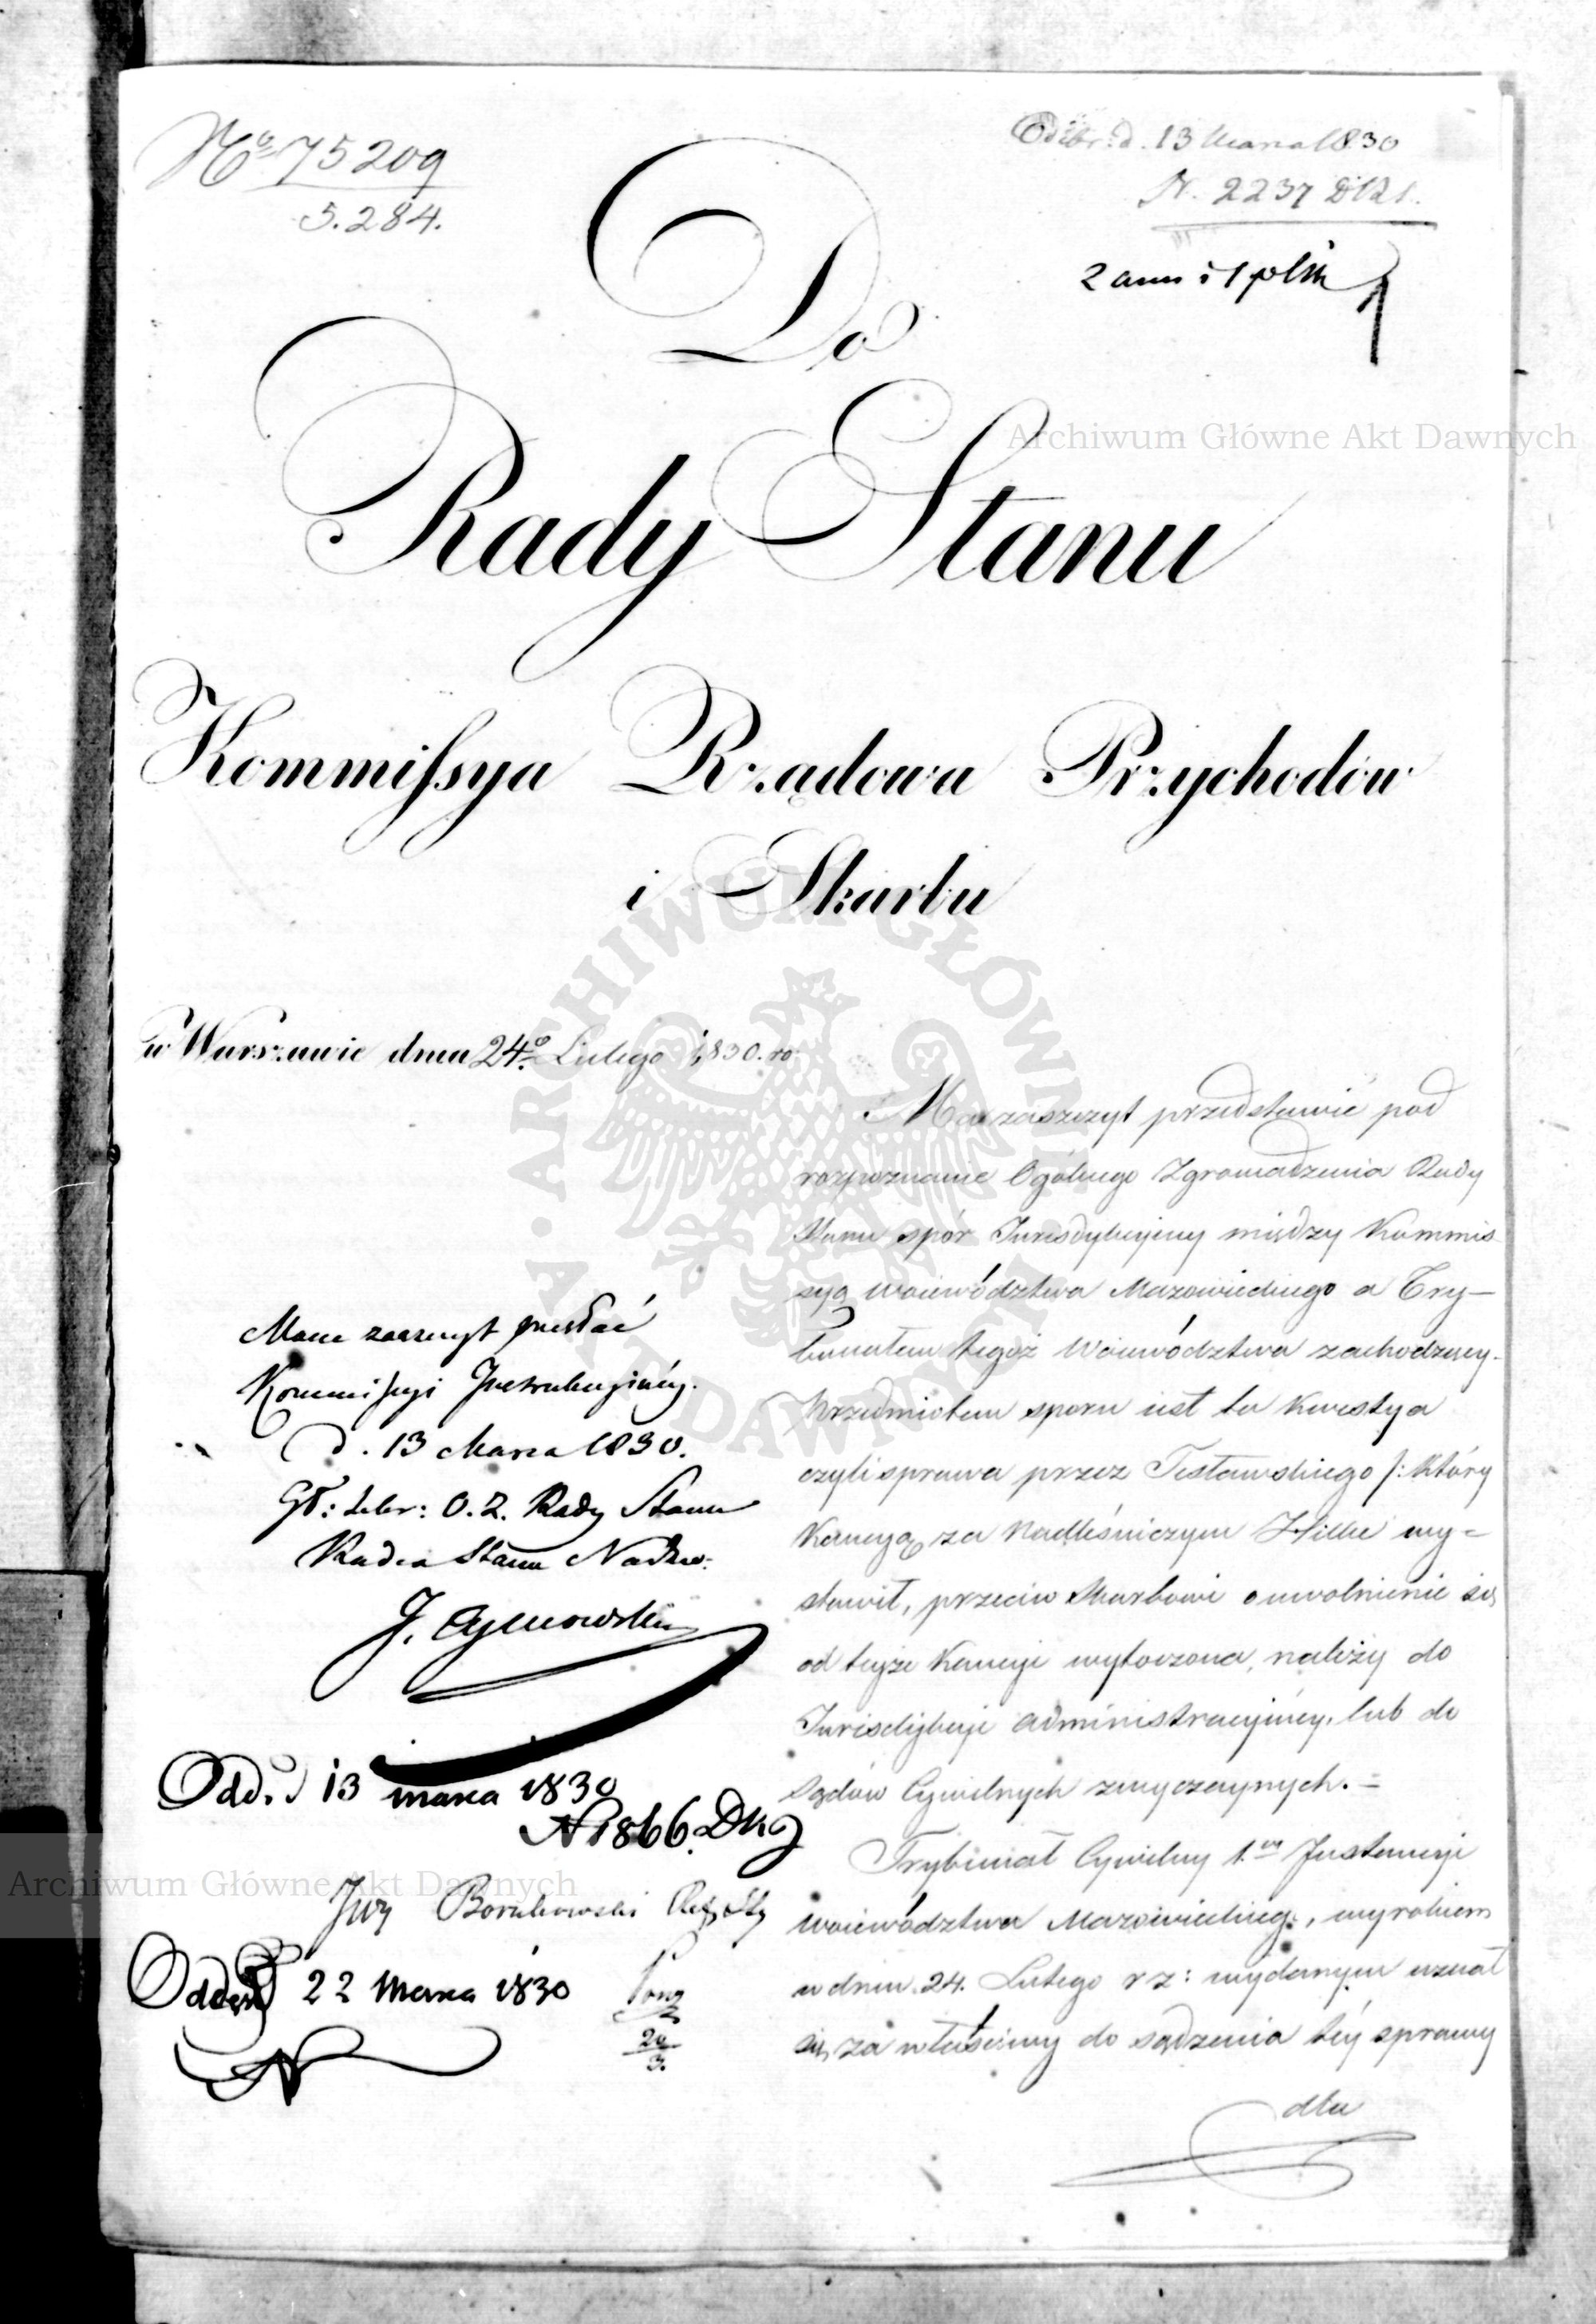 No 75209
5.284.
Odebr: d. 13 Marca 1830
N. 2237
Do
Rady Stanu
Kommissya Rządowa Przychodów
i Skarbu
w Warszawie dnia 24o Lutego 1830. ro
Ma zaszczyt przedstawić pod
rozpoznanie Ogólnego Zgromadzenia Rady
Stanu spór Jurisdykcyjny między Kommis
syą Województwa Mazowieckiego a Try–
bunałem tegoż Województwa zachodzący.
Przedmiotem sporu iest ta kwestya
czyli sprawa przez Testawskiego /: który
Kaucyą za Nadleśniczym Hilke wy=
stawił, przeciw Skarbowi o uwolnienie się
od teyże Kaucyi wytoczona, należy do
Jurisdykcyi administracyiney, lub do
Sądów Cywilnych zwyczaynych. =
Trybunał Cywilny 1. Instancyi
Województwa Mazowieckiego, wyrokiem
w dniu 24. Lutego r z: wydanym uznał
się za właściwy do sądzenia téy sprawy
dla
Mam zaszczyt przesłać
Kommissyi Instrukcyinéy.
d. 13 Marca 1830.
Sekr: O. Z. Rady Stanu
Radca Stanu Nadzw:
Odd. d 13 marca 1830
N 1866.
Oddano 22 Marca 1830
Archiwum Główne Akt Dawnych
Archiwum Główne Akt Dawnych
ARCHIWUM GŁÓWNE AKT DAWNYCH